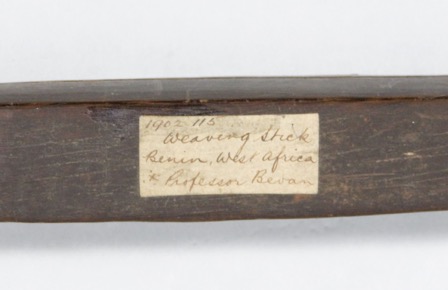 1902 115
Weaving Stick
Benin, West Africa
Professor Bevan